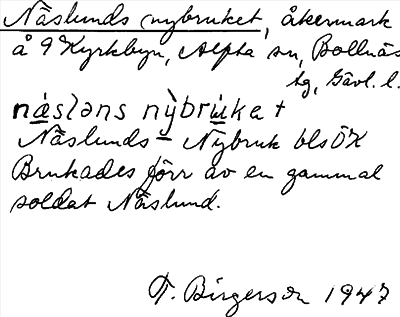 Näslunds nybruket, åkermark
å 9 Kyrkbyn, Alfta sn, Bollnäs
tg, Gävl. l.
nä̀slans nỳbruka t
Näslunds - Nybruk bls ÖK
Brukades förr av en gammal
soldat Näslund.
T. Birgerson 1947